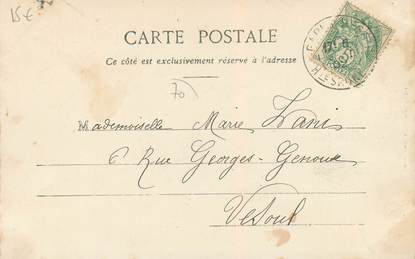 15€
CARTE POSTALE
Ce côté est exclusivement réservé à l'adresse
70
Mademoiselle Marie
6 Rue Georges-Genoux
Vesoul